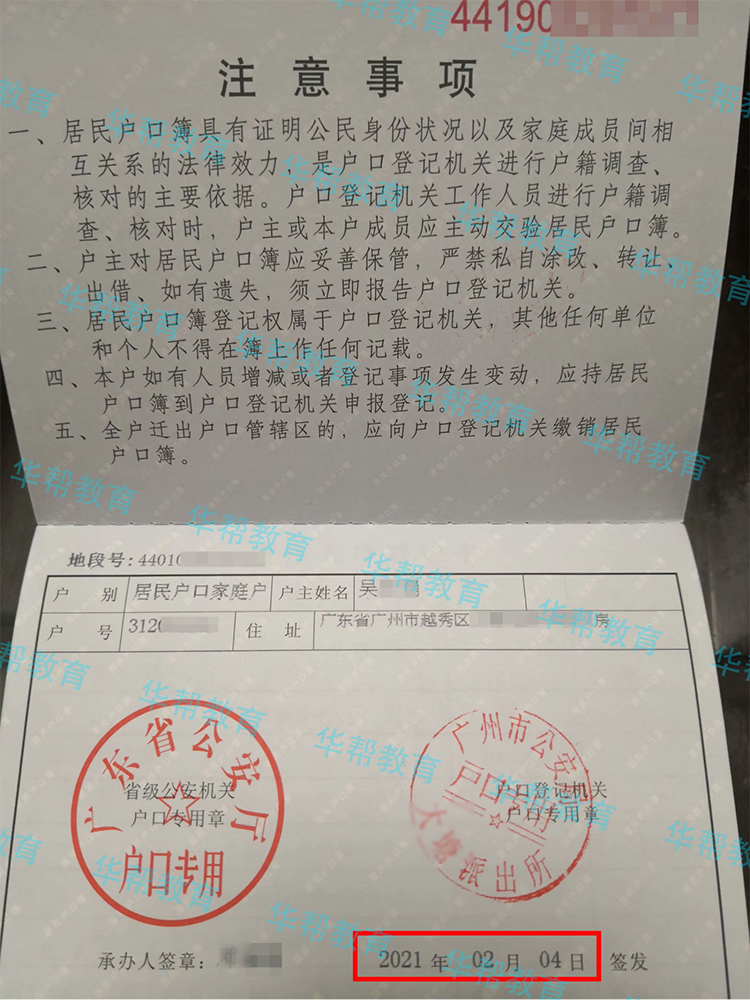 44190
注意事项
一、居民户口簿具有证明公民身份状况以及家庭成员间相
互关系的法律效力，是户口登记机关进行户籍调查、
核对的主要依据。户口登记机关工作人员进行户籍调
查、核对时，户主或本户成员应主动交验居民户口簿。
二、户主对居民户口簿应妥善保管，严禁私自涂改、转让、
出借，如有遗失，须立即报告户口登记机关。
三、居民户口簿登记权属于户口登记机关，其他任何单位
和个人不得在簿上作任何记载。
四、本户如有人员增减或者登记事项发生变动，应持居民
户口簿到户口登记机关申报登记。
五、全户迁出户口管辖区的，应向户口登记机关缴销居民
户口簿。
地段号: 4401
户 别 居民户口家庭户 户主姓名 吴
户 号 3120 住 址 广东省广州市越秀区 房
广东省公安厅
省级公安机关
户口专用章
户口专用
广州市公安局
户口登记机关
户口专用章
户口专用
派出所
承办人签章:
2021 年 02 月 04 日 签发
华帮教育